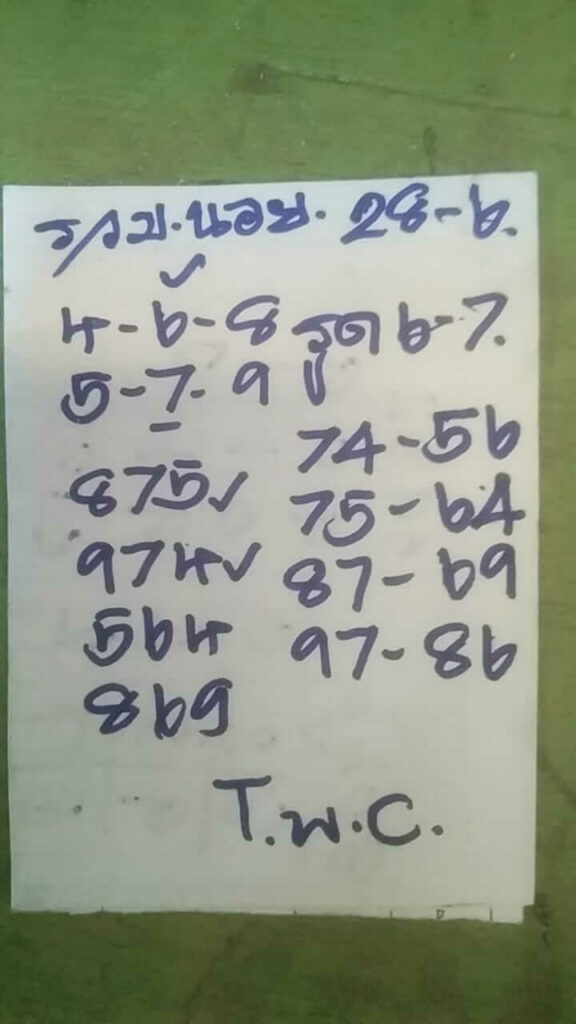 รวม.นอย. 28-6.
4-6-8 รูด 6-7.
5-7-9
74-56
875✓ 75-64
974✓ 87-69
564 97-86
869
T.พ.C.